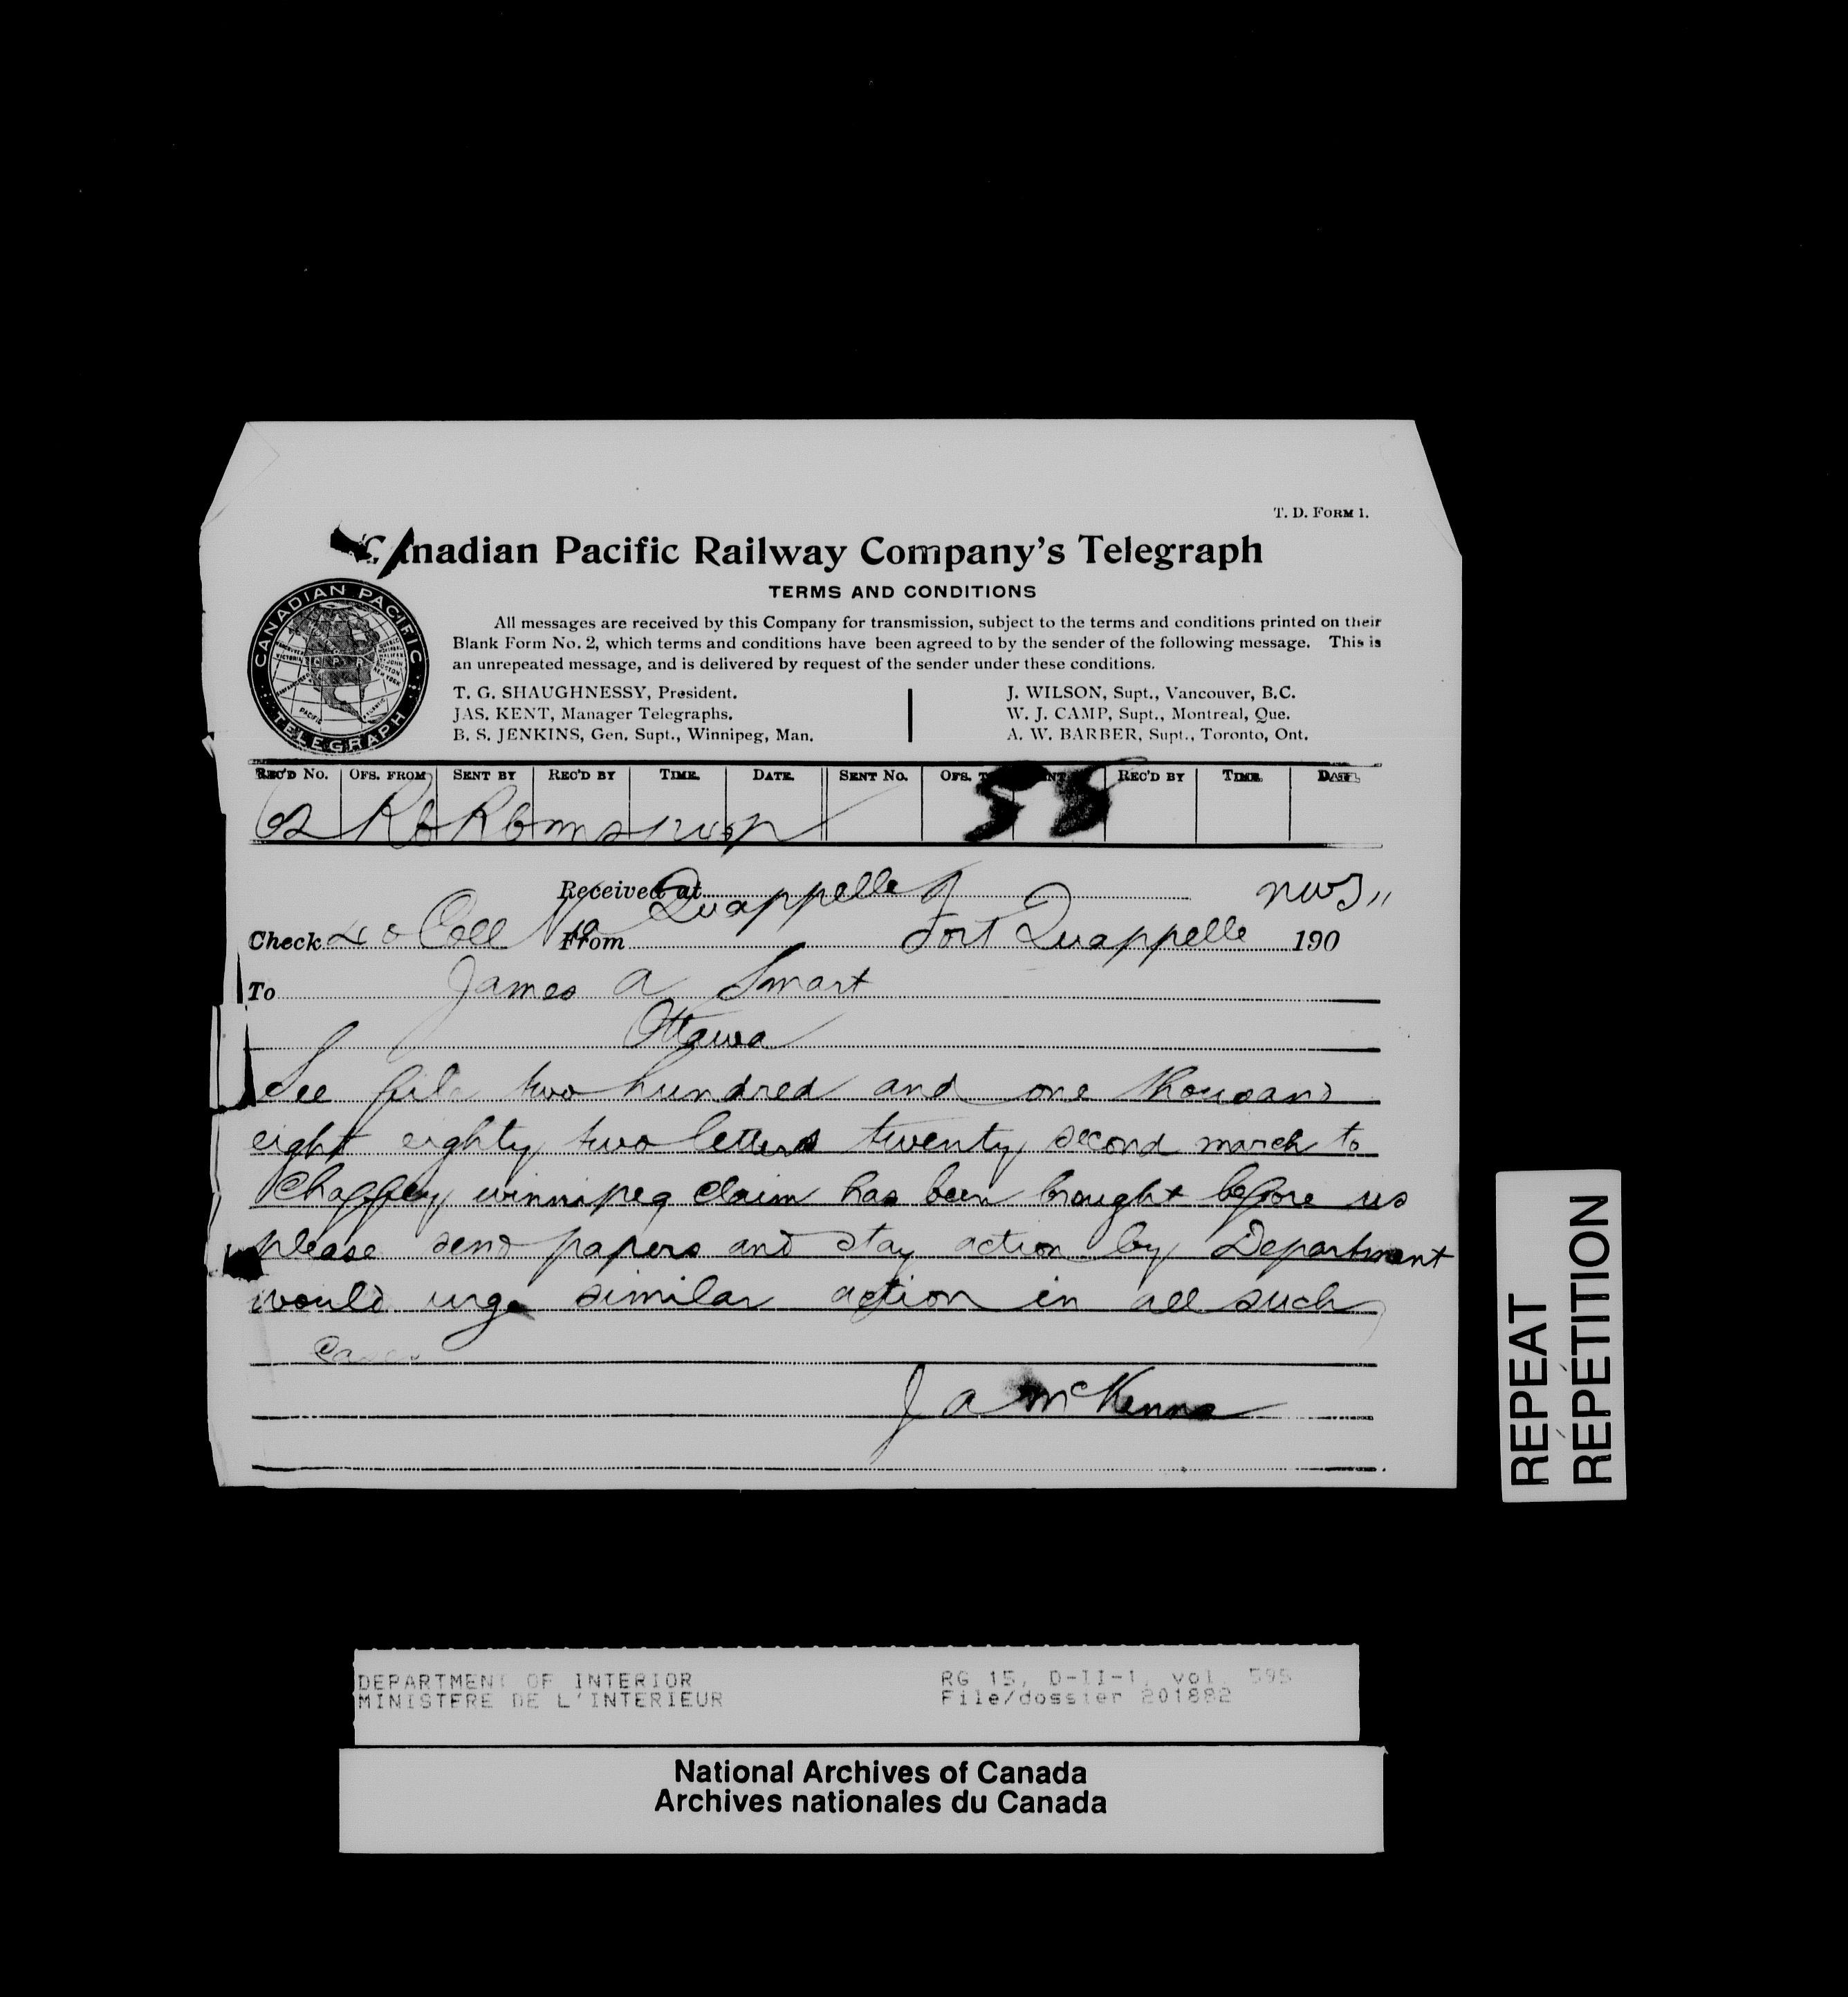 T. D. FORM 1.
Canadian Pacific Railway Company's Telegraph
TERMS AND CONDITIONS
All messages are received by this Company for transmission, subject to the terms and conditions printed on their
Blank Form No. 2, which terms and conditions have been agreed to by the sender of the following message. This is
an unrepeated message, and is delivered by request of the sender under these conditions.
CANADIAN PACIFIC
TELEGRAPH
T. G. SHAUGHNESSY, President.
JAS. KENT, Manager Telegraphs.
B. S. JENKINS, Gen. Supt., Winnipeg, Man.
J. WILSON, Supt., Vancouver, B.C.
W. J. CAMP, Supt., Montreal, Que.
A. W. BARBER, Supt., Toronto, Ont.
REC'D NO. OFS. FROM SENT BY REC'D BY TIME. DATE. SENT NO. OFS. REC'D BY TIME. DATE.
Received at
Check From Fort Quappelle 190
To James A Smart
Ottawa
See file two hundred and one thousand
eight eighty two letters twenty second march to
Chaffey winnipeg claim has been brought before us
please send papers and stay action by Department
would urge similar action in all such
cases
J A McKenna
REPEAT
RÉPÉTITION
DEPARTMENT OF INTERIOR
MINISTERE DE L'INTERIEUR
RG 15, D-II-1, vol. 595
File/dossier 201882
National Archives of Canada
Archives nationales du Canada